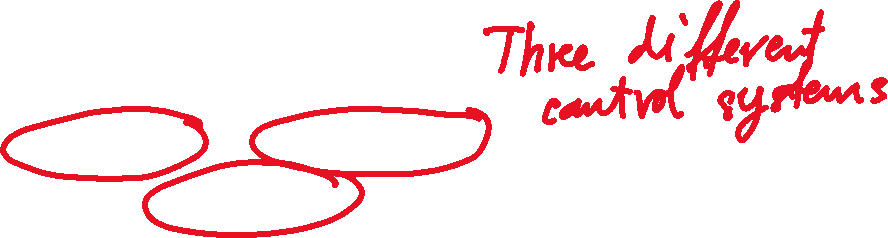 Three different
control systems